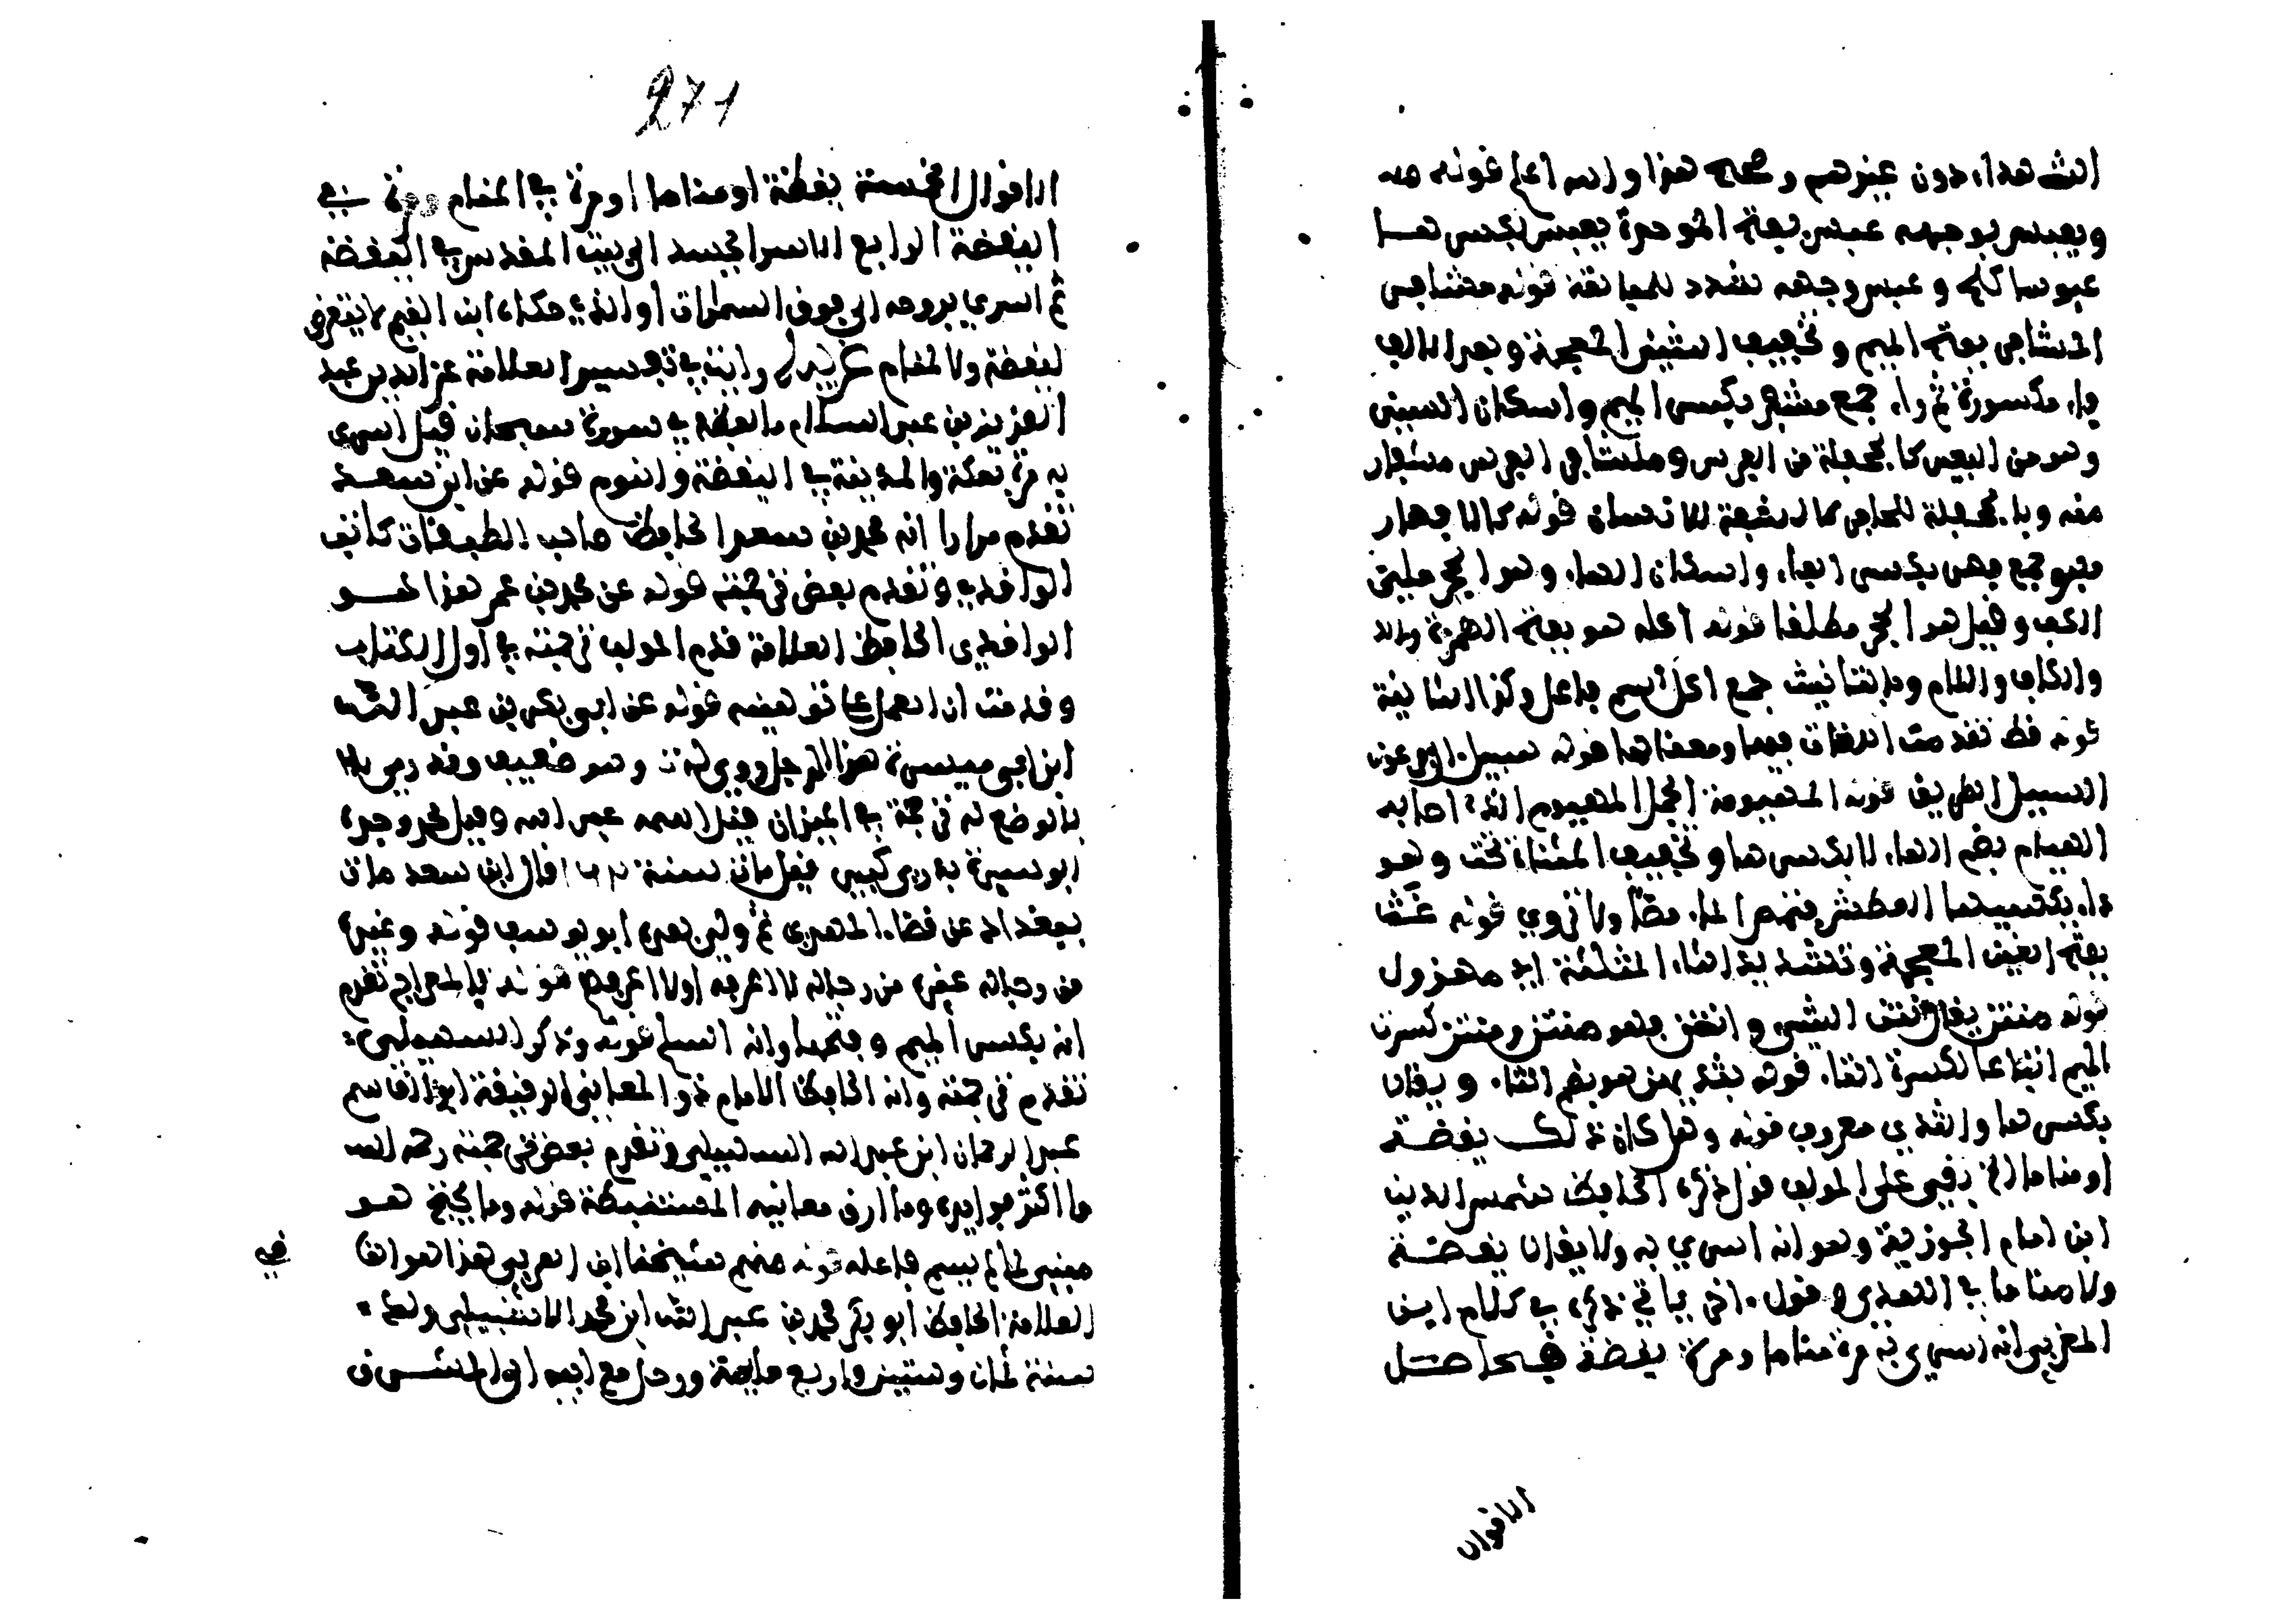 الشهداء دون غيرهم وصحح هذا والله اعلم قوله
ويعبس بوجهه عبس بفتح الموحدة يعبس بكسرها
عبوسا كلح وعبس وجهه شدد للمبالغة قوله مشافر
المشافر بفتح الميم وتخفيف الشين المعجمة وبعد الالف
فاء مكسورة ثم راء جمع مشفر بكسر الميم واسكان الشين
وهو من البعير كالجحفلة من الفرس ومشافر الفرس مستعار
منه والجحفلة للحافر كالشفة للانسان قوله كالافهار
فهو جمع فهر بكسر الفاء واسكان الهاء وهو الحجر ملء
الكف وقيل هو الحجر مطلقا قوله اكلة هو بفتح الهمزة
والكاف واللام وبالتأنيث جمع اكل اسم فاعل وكذا الثانية
قوله قط تقدمت اللغات فيها ومعناها قوله سبيل ال فرعون
السبيل الطريق قوله المهيومة الجمل المهيوم الذي اصابه
الهيام بضم الهاء لا بكسرها وتخفيف المثناة تحت وهو
داء يكسبها العطش فتمص الماء مصا ولا تروي قوله غث
بفتح الغين المعجمة وتشديد الثاء المثلثة اي مهزول
قوله منتن يقال نتن الشيء وانتن فهو منتن ومنتن كسرت
الميم اتباعا لكسرة التاء قوله بثديهن هو بضم الثاء ويقال
بكسرها والثدي معروف قوله وهل كان ذلك يقضة
او مناما الخ بقي على المولف قول ذكره الحافظ شمس الدين
ابن امام الجوزية وهو انه اسري به ولا يقال يقضة
ولا مناما في الهدي وقول اخر ياتي ذكره في كلام ابن
العربي انه اسري به مرة مناما ومرة يقضة فيحاصل
الاقوال
271
الاقوال الخمسة يقظة او مناما او مرة في المنام ومرة في
اليقضة الرابع الاسرا بجسده الى بيت المقدس في اليقضة
ثم اسري بروحه الى فوق السموات او الذي حكاه ابن القيم لا يتعرض
ليقضة ولا لمنام ورايت في تفسير العلامة عز الدين عبد
العزيز بن عبد السلام ما لفظه في سورة سبحان قيل اسرى
به مرة بمكة والمدينة في اليقضة والنوم قوله عن ابن سعد
تقدم مرارا انه محمد بن سعد الحافظ صاحب الطبقات كاتب
الواقدي وتقدم بعض ترجمته قوله عن محمد بن عمر هذا هو
الواقدي الحافظ العلامة قدم المولف ترجمته في اول الكتاب
وقدمت ان العمل على توهينه قوله عن ابي بكر بن عبد الله
ابن ابي سبرة هذا الرجل روى له ق وهو ضعيف وقد رمي
بالوضع له ترجمة في الميزان قيل اسمه عبد الله وقيل محمد وجده
ابو سبرة بدري كبير قيل مات سنة قال ابن سعد مات
ببغداد عن قضاء المهدي ثم ولي بعده ابو يوسف قوله وغيره
من رجاله غيره من رجاله لا اعرفه اولا اعرفهم قوله بالمعراج تقدم
انه بكسر الميم وفتحها وانه السلم قوله وذكر السهيلي
تقدم ترجمته وانه الحافظ الامام ذو المعاني الرقيقة ابو القاسم
عبد الرحمان ابن عبد الله السهيلي وتقدم بعض ترجمته رحمه الله
ما اكثر فوايده وما ارق معانيه المستنبطة قوله وما يحتج هو
مبني لما لم يسم فاعله قوله منهم شيخنا ابن العربي هذا هو
العلامة الحافظ ابو بكر محمد بن عبد الله ابن محمد الاشبيلي ولد
سنة ثمان وستين واربع ماية ورحل مع ابيه الى المشرق